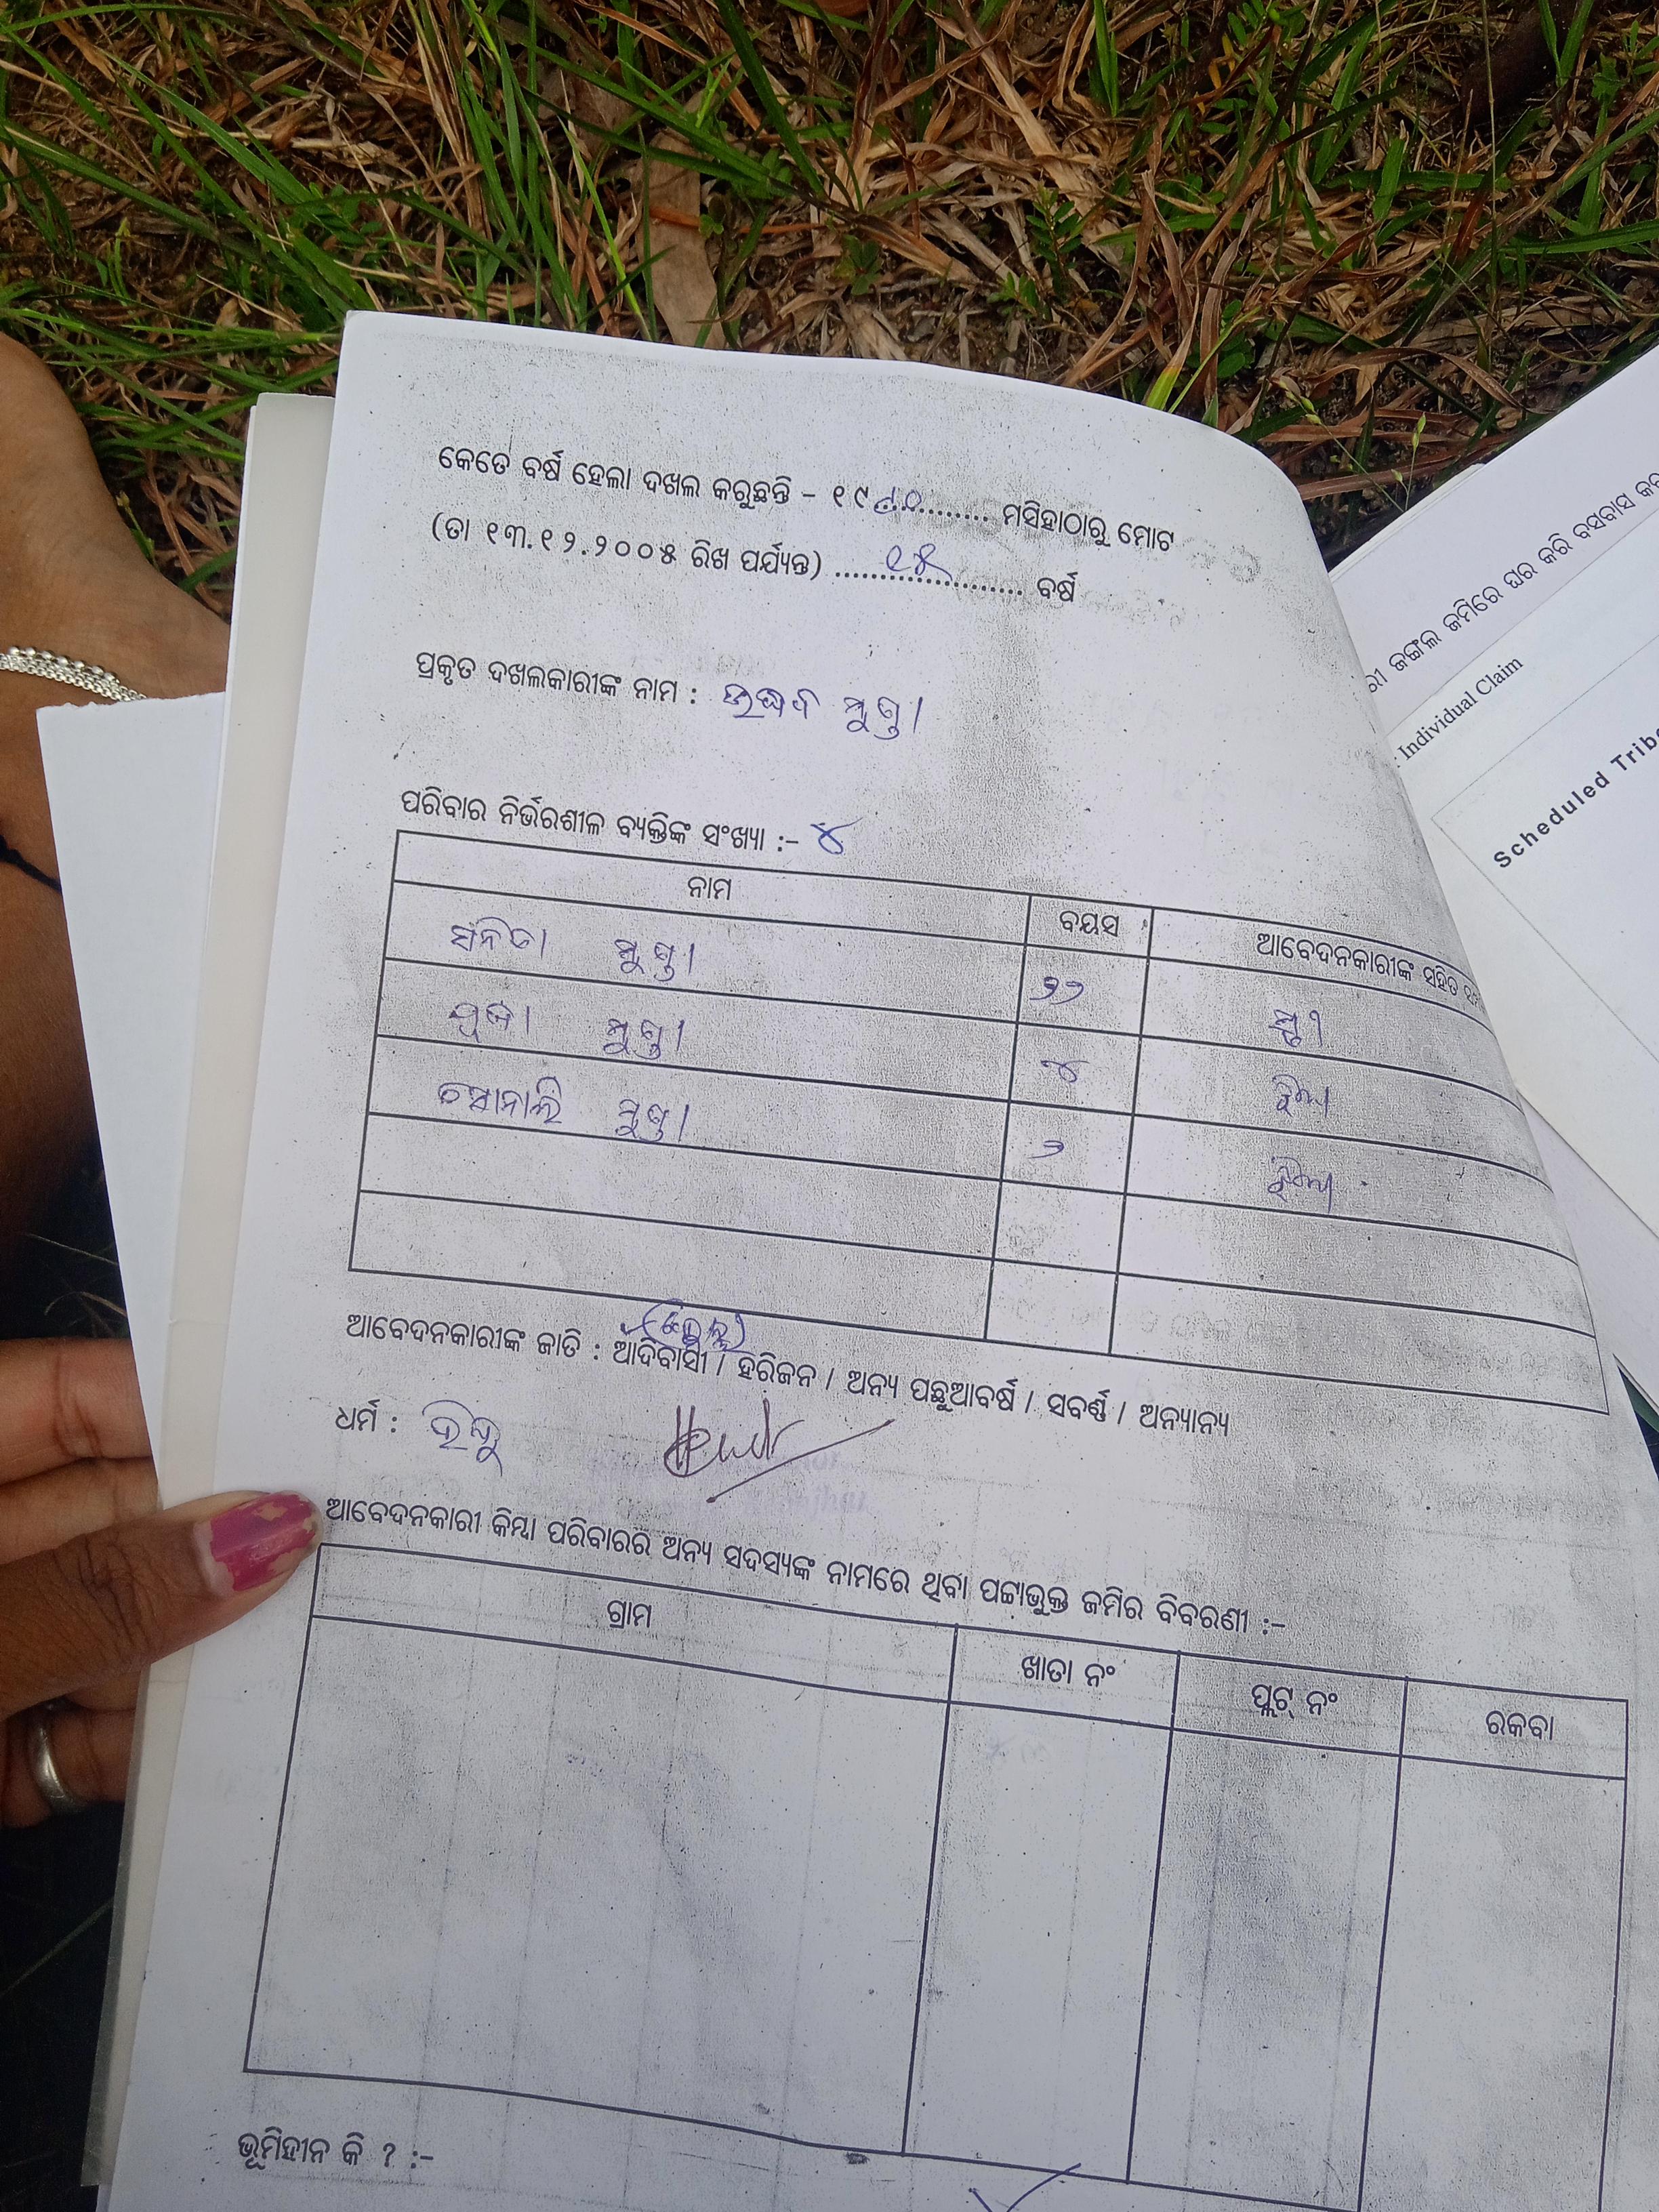 କେତେ ବର୍ଷ ହେଲା ଦଖଲ କରୁଛନ୍ତି - ୧୯୯୦........ ମସିହାଠାରୁ ମୋଟ
(ତା ୧୩.୧୨.୨୦୦୫ ରିଖ ପର୍ଯ୍ୟନ୍ତ) ......୧୫...... ବର୍ଷ
ପ୍ରକୃତ ଦଖଲକାରୀଙ୍କ ନାମ : ଉଦ୍ଧବ ମୁଣ୍ଡା
ପରିବାର ନିର୍ଭରଶୀଳ ବ୍ୟକ୍ତିଙ୍କ ସଂଖ୍ୟା :- ୪
ନାମ ବୟସ ଆବେଦନକାରୀଙ୍କ ସହିତ
ସନିତା ମୁଣ୍ଡା ୨୨ ସ୍ତ୍ରୀ
ପୂଜା ମୁଣ୍ଡା ୪ ଝିଅ
ସୋନାଲି ମୁଣ୍ଡା ୨ ଝିଅ
ଆବେଦନକାରୀଙ୍କ ଜାତି : ଆଦିବାସୀ / ହରିଜନ / ଅନ୍ୟ ପଛୁଆବର୍ଷ / ସବର୍ଣ୍ଣ / ଅନ୍ୟାନ୍ୟ
ଧର୍ମ : ହିନ୍ଦୁ
ଆବେଦନକାରୀ କିମ୍ବା ପରିବାରରି ଅନ୍ୟ ସଦସ୍ୟଙ୍କ ନାମରେ ଥିବା ପଟ୍ଟାଭୁକ୍ତ ଜମିର ବିବରଣୀ :-
ଗ୍ରାମ ଖାତା ନଂ ପ୍ଲଟ୍ ନଂ ରକବା
ଭୂମିହୀନ କି ? :-
ଜଙ୍ଗଲ ଜମିରେ ଘର କରି ବସବାସ
Individual Claim
Scheduled